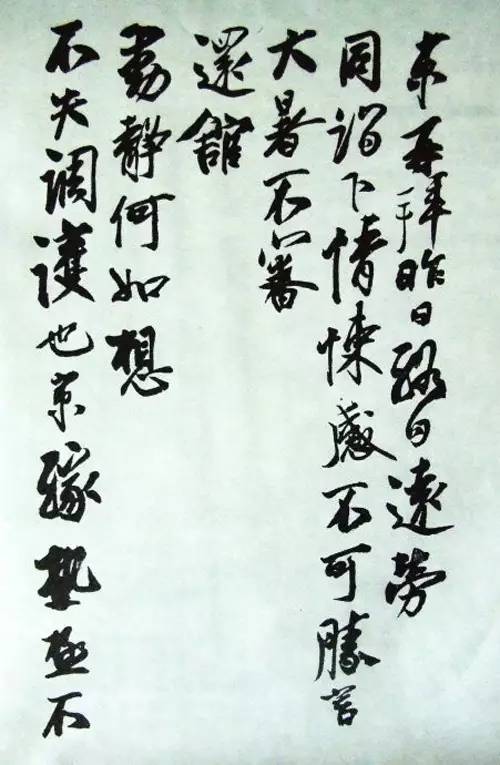 京再拜昨日終日遠勞
同詣下情悚感不可勝言
大暑不審
還館
動靜何如想
不失調護也京緣熱極不